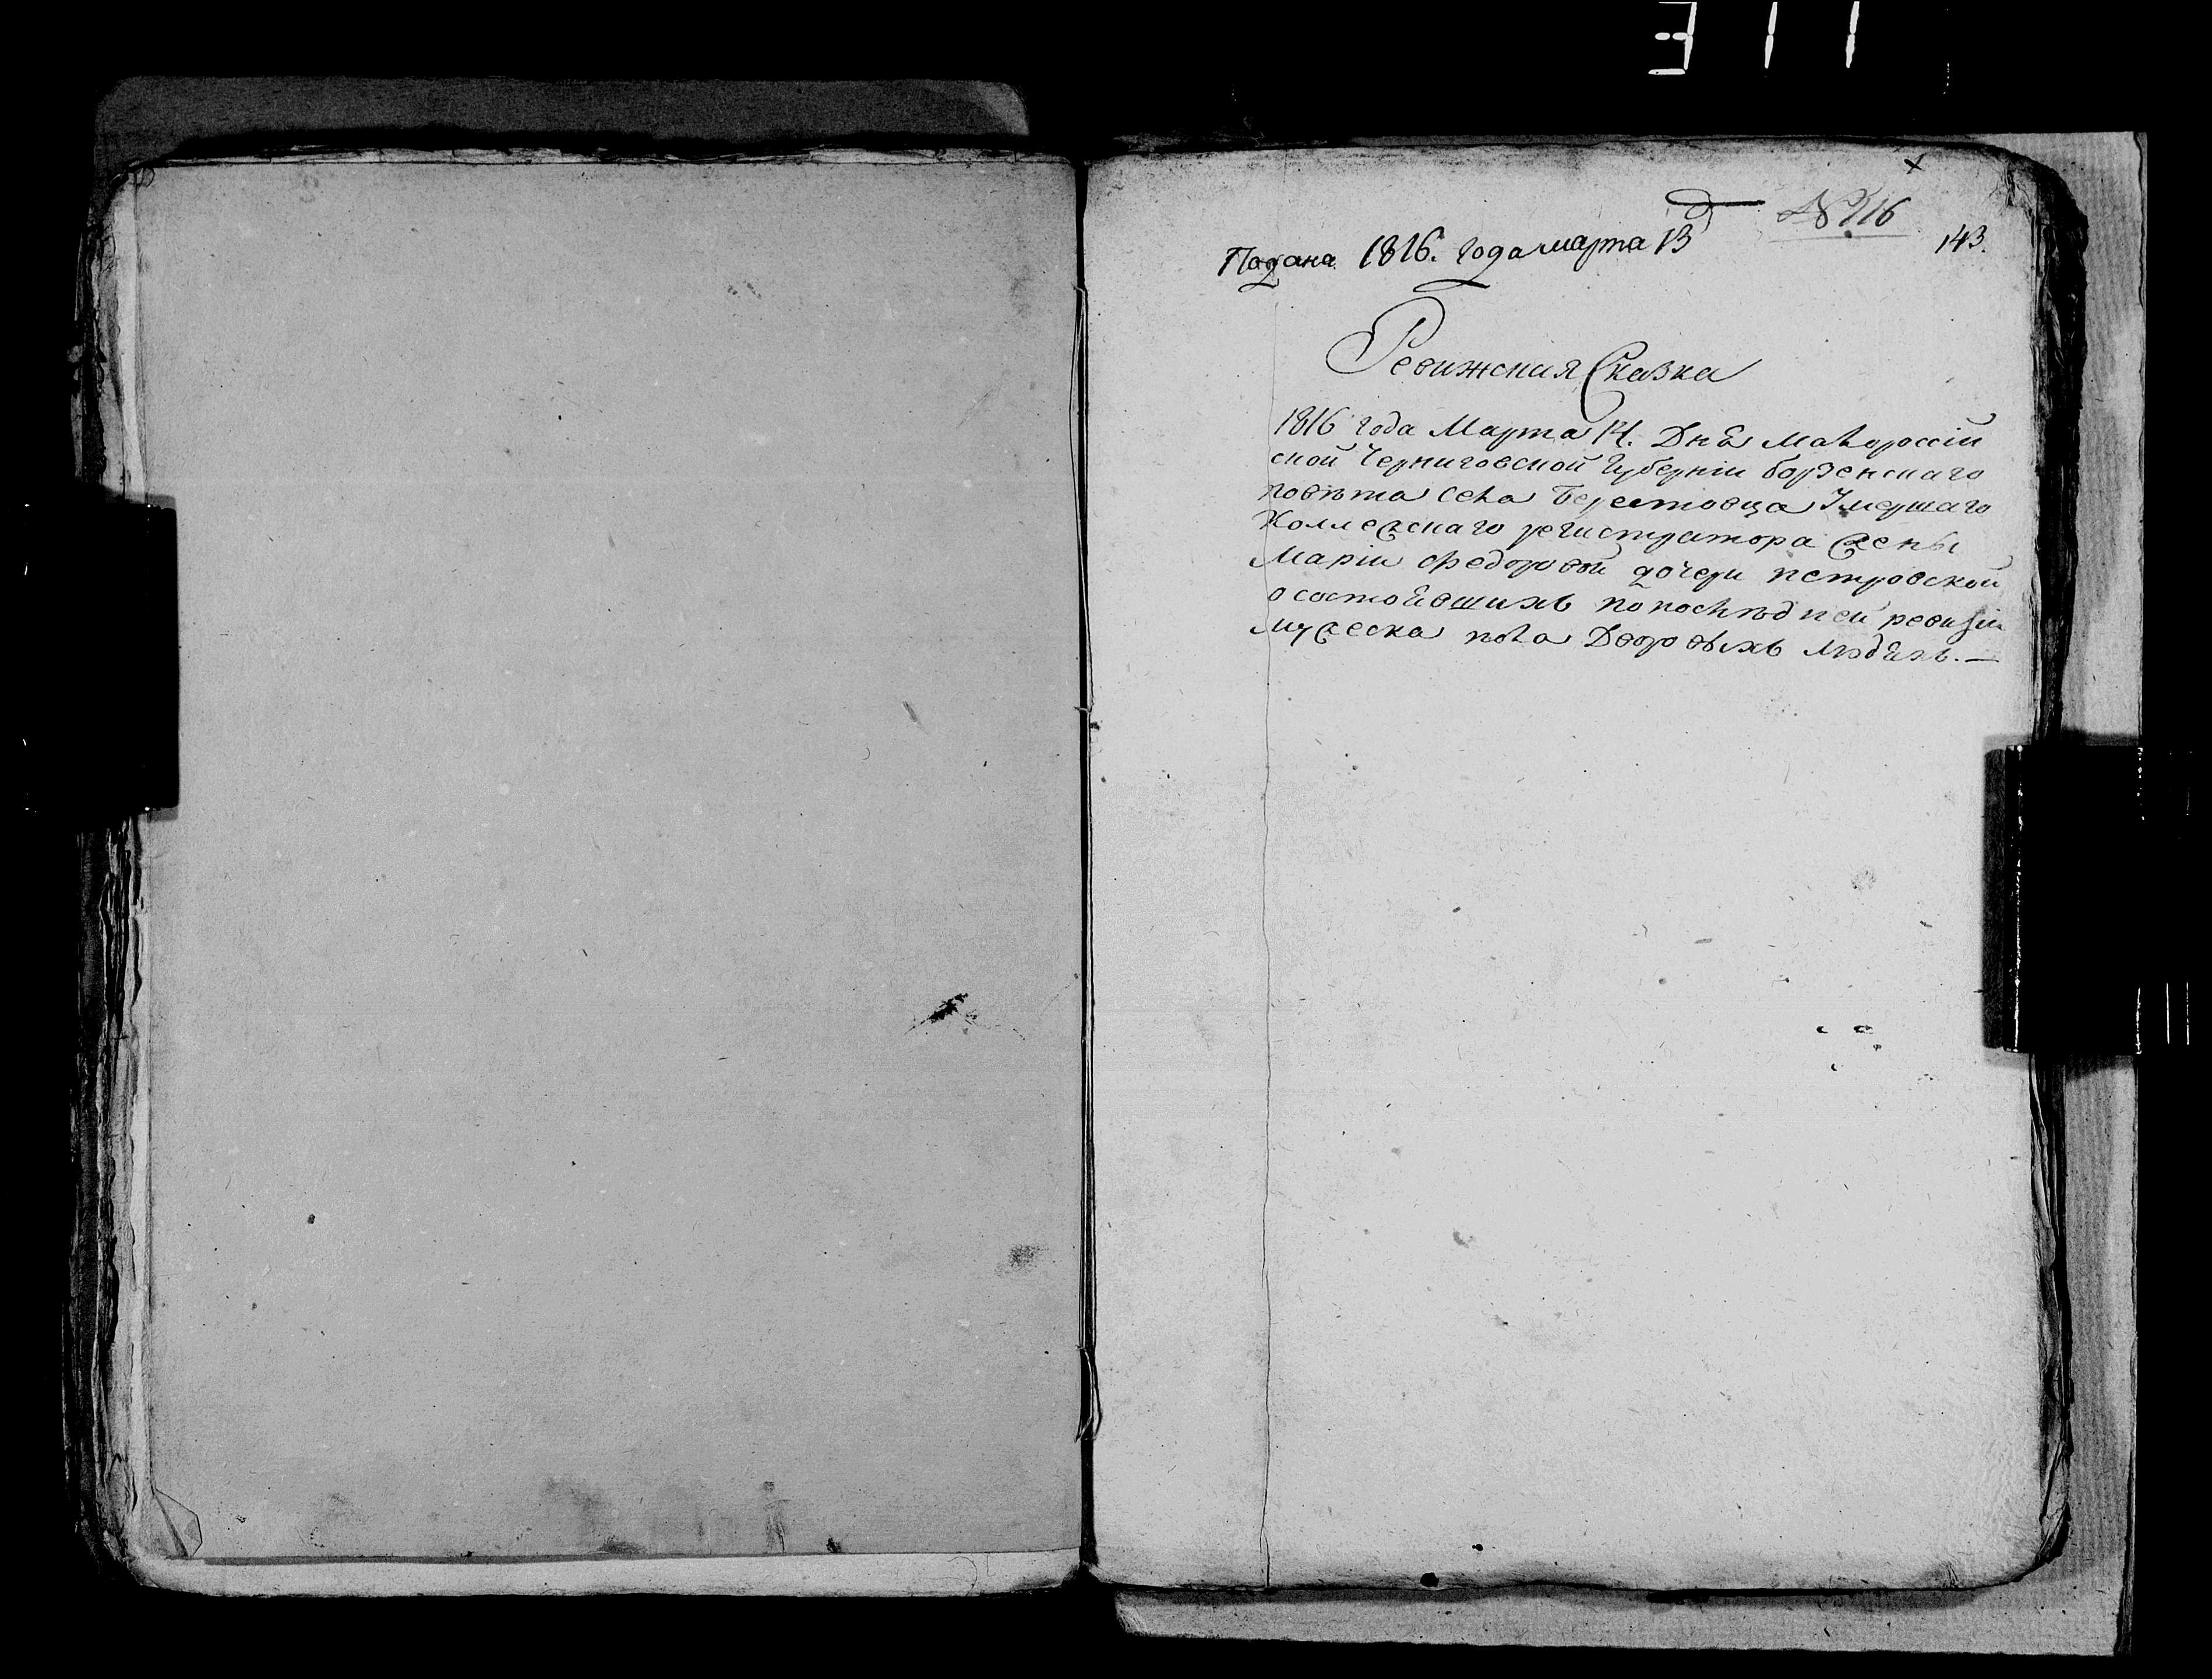 311
№ 116
143.
Подана 1816. года марта 13 д
Ревижская Сказка
1816 года Марта 14. Дня Малороссій
ской Черниговской Губерніи борзенскаго
повѣта села Берестовца Умершаго
Коллежскаго регистратора жены
Маріи Федоровой дочери петровской
о состоявшихъ по послѣдней ревизіи
мужеска пола Дворовыхъ людяхъ. —